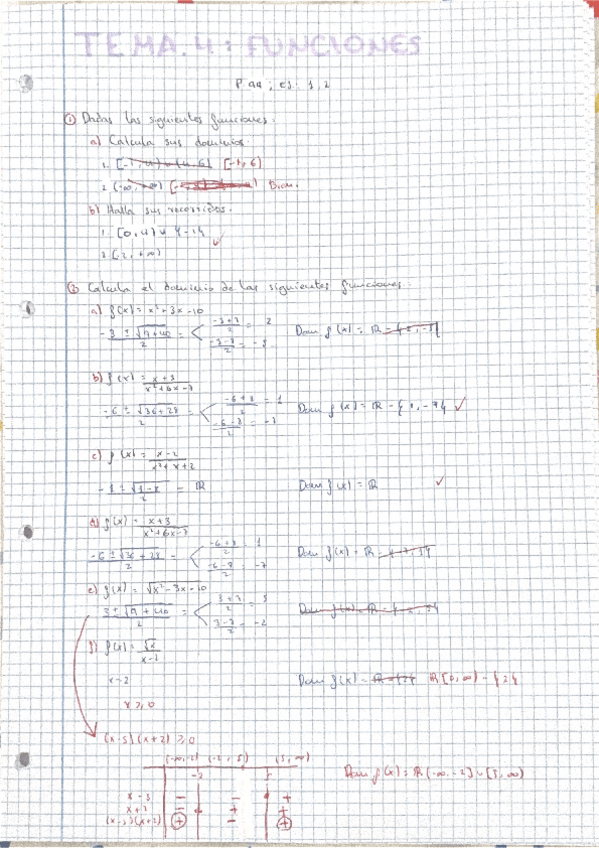 TEMA.4: FUNCIONES
P. 94; ej. 1,2
① Dadas las siguientes funciones.
a) Calcula sus dominios.
1. [-1, 6]
2. (-∞, ∞) Bien.
b) Halla sus recorridos.
1. [0,4) ∪ {-1}
2. (-2, +∞) ✓
② Calcula el dominio de las siguientes funciones.
a) f(x) = x²+3x-10
-3 ± √9+40 / 2 = < -3+7 / 2 = 2 Dom f(x) = ℝ
b) f(x) = x+3 / x²+6x-7
-6 ± √36+28 / 2 = < -6+8 / 2 = 1 -6-8 / 2 = -7 Dom f(x) = ℝ - {1, -7} ✓
c) f(x) = x-2 / x²+x+2
-1 ± √1-8 / 2 = ℝ Dom f(x) = ℝ ✓
d) f(x) = x+3 / x²+6x-7
-6 ± √36+28 / 2 = < -6+8 / 2 = 1 -6-8 / 2 = -7 Dom f(x) = ℝ
e) f(x) = √x²-3x-10
3 ± √9+40 / 2 = < 3+7 / 2 = 5 3-7 / 2 = -2
f) f(x) = √x / x-2
x-2 Dom f(x) = ℝ [0, ∞) - {2}
x ≥ 0
(x-5)(x+2) ≥ 0
(-∞,-2) (-2, 5) (5, ∞)
-2 5
x-5 - - +
x+2 - + +
(x-5)(x+2) + - +
Dom f(x) = ℝ (-∞, -2] ∪ [5, ∞)